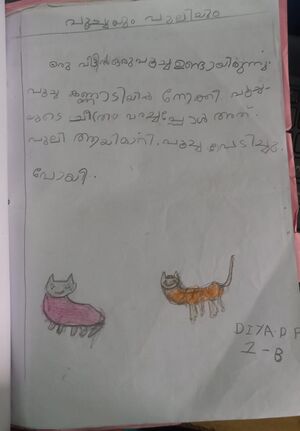 പൂച്ചയും പുലിയും
ഒരു വീട്ടിൽ ഒരു പൂച്ച ഉണ്ടായിരുന്നു.
പൂച്ച കണ്ണാടിയിൽ നോക്കി. പൂച്ച-
യുടെ ചിത്രം വരച്ചപ്പോൾ അത്.
പുലി ആയിമാറി. പൂച്ച പേടിച്ചു
പോയി..
DIYA.D P
1-B